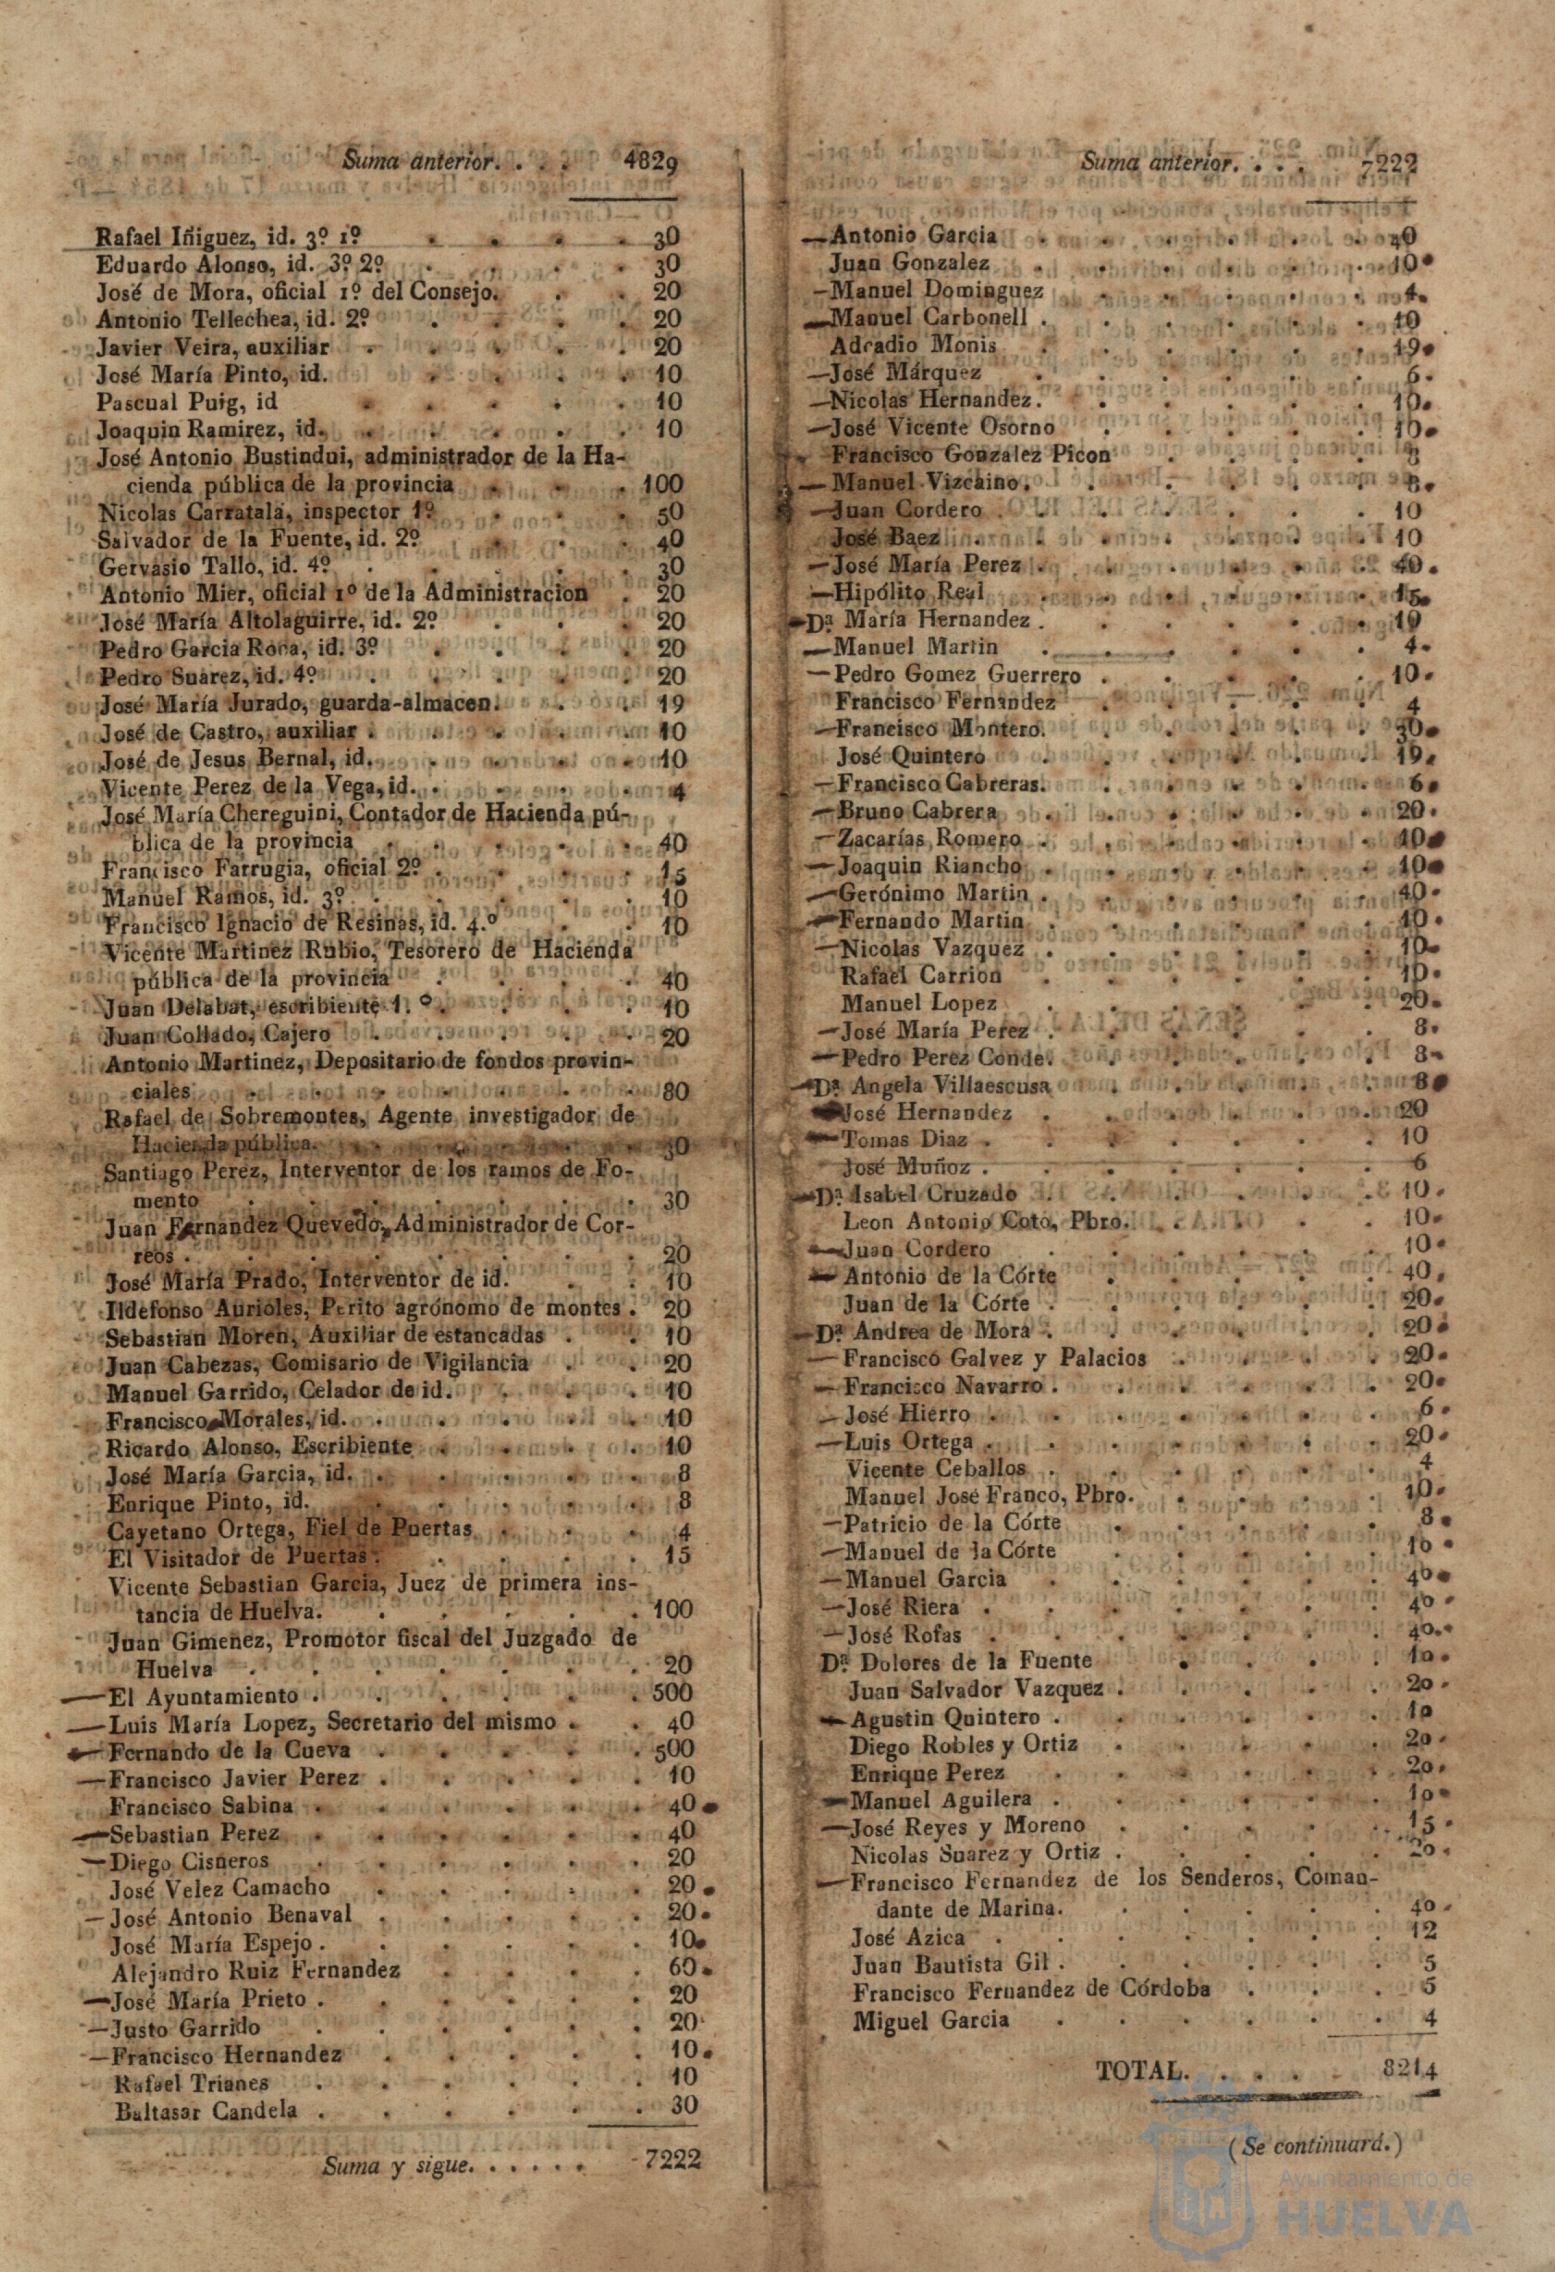 Suma anterior. . . . 4829
Rafael Iñiguez, id. 3º 1º . . . . 30
Eduardo Alonso, id. 3º 2º . . . . 30
José de Mora, oficial 1º del Consejo. . . 20
Antonio Tellechea, id. 2º . . . . 20
Javier Veira, auxiliar . . . . . 20
José María Pinto, id. . . . . 10
Pascual Puig, id . . . . . 10
Joaquin Ramirez, id. . . . . . 10
José Antonio Bustindui, administrador de la Ha-
cienda pública de la provincia . . . 100
Nicolas Carratalá, inspector 1º . . . 50
Salvador de la Fuente, id. 2º . . . 40
Gervasio Tallo, id. 4º . . . . . 30
Antonio Mier, oficial 1º de la Administracion . 20
José María Altolaguirre, id. 2º . . . 20
Pedro Garcia Roca, id. 3º . . . . 20
Pedro Suarez, id. 4º . . . . . 20
José María Jurado, guarda-almacen. . . 19
José de Castro, auxiliar . . . . . 10
José de Jesus Bernal, id. . . . . . 10
Vicente Perez de la Vega, id. . . . . 4
José María Chereguini, Contador de Hacienda pú-
blica de la provincia . . . . . 40
Francisco Farrugia, oficial 2º . . . . 15
Manuel Ramos, id. 3º . . . . . 10
Francisco Ignacio de Resinas, id. 4.º . . 10
Vicente Martinez Rubio, Tesorero de Hacienda
pública de la provincia . . . . 40
Juan Delabat, escribiente 1.º . . . . 10
Juan Collado, Cajero . . . . . 20
Antonio Martinez, Depositario de fondos provin-
ciales . . . . . . . 80
Rafael de Sobremontes, Agente investigador de
Hacienda pública. . . . . . 30
Santiago Perez, Interventor de los ramos de Fo-
mento . . . . . . . 30
Juan Fernandez Quevedo, Administrador de Cor-
reos . . . . . . . . 20
José María Prado, Interventor de id. . . 10
Ildefonso Aurioles, Perito agrónomo de montes . 20
Sebastian Moren, Auxiliar de estancadas . . 10
Juan Cabezas, Comisario de Vigilancia . . 20
Manuel Garrido, Celador de id. . . . 10
Francisco Morales, id. . . . . . 10
Ricardo Alonso, Escribiente . . . . 10
José María Garcia, id. . . . . . 8
Enrique Pinto, id. . . . . . 8
Cayetano Ortega, Fiel de Puertas . . . 4
El Visitador de Puertas . . . . . 15
Vicente Sebastian Garcia, Juez de primera ins-
tancia de Huelva. . . . . . 100
Juan Gimenez, Promotor fiscal del Juzgado de
Huelva . . . . . . . 20
—El Ayuntamiento . . . . . . 500
—Luis María Lopez, Secretario del mismo . . 40
—Fernando de la Cueva . . . . . 500
—Francisco Javier Perez . . . . . 10
Francisco Sabina . . . . . . 40
—Sebastian Perez . . . . . . 40
—Diego Cisneros . . . . . . 20
José Velez Camacho . . . . . 20
—José Antonio Benaval . . . . . 20
José María Espejo . . . . . . 10
Alejandro Ruiz Fernandez . . . . 60
—José María Prieto . . . . . . 20
—Justo Garrido . . . . . . 20
—Francisco Hernandez . . . . . 10
Rafael Trianes . . . . . . 10
Baltasar Candela . . . . . . 30
Suma y sigue. . . . . . 7222
Suma anterior. . . . 7222
—Antonio Garcia . . . . . . 40
Juan Gonzalez . . . . . . 10
—Manuel Dominguez . . . . . 4
—Manuel Carbonell . . . . . . 10
Adradio Monis . . . . . . 19
—José Márquez . . . . . . 6
—Nicolas Hernandez . . . . . . 10
—José Vicente Osorno . . . . . 10
Francisco Gonzalez Picon . . . . 8
—Manuel Vizcaino . . . . . . 8
—Juan Cordero . . . . . . 10
José Baez . . . . . . 10
—José María Perez . . . . . . 40
—Hipólito Real . . . . . . 15
—Dª María Hernandez . . . . . . 10
—Manuel Martin . . . . . . 4
—Pedro Gomez Guerrero . . . . . 10
Francisco Fernandez . . . . . 4
—Francisco Montero. . . . . . 30
José Quintero . . . . . . 19
—Francisco Cabreras. . . . . . 6
—Bruno Cabrera . . . . . . 20
—Zacarías Romero . . . . . . 10
—Joaquin Riancho . . . . . . 10
—Gerónimo Martin . . . . . . 40
—Fernando Martin . . . . . . 10
—Nicolas Vazquez . . . . . . 10
Rafael Carrion . . . . . . 10
Manuel Lopez . . . . . . 20
—José María Perez . . . . . . 8
—Pedro Perez Conde. . . . . . 8
—Dª Angela Villaescusa . . . . . 8
José Hernandez . . . . . . 20
—Tomas Diaz . . . . . . . 10
José Muñoz . . . . . . . 6
—Dª Isabel Cruzado . . . . . . 10
Leon Antonio Coto, Pbro. . . . . 10
—Juan Cordero . . . . . . 10
—Antonio de la Córte . . . . . 40
Juan de la Córte . . . . . . 20
—Dª Andrea de Mora . . . . . . 20
—Francisco Galvez y Palacios . . . . 20
—Francisco Navarro . . . . . . 20
—José Hierro . . . . . . . 6
—Luis Ortega . . . . . . . 20
Vicente Ceballos . . . . . . 4
Manuel José Franco, Pbro. . . . . 10
—Patricio de la Córte . . . . . 8
—Manuel de la Córte . . . . . 10
—Manuel Garcia . . . . . . 40
—José Riera . . . . . . . 40
—José Rofas . . . . . . . 40
Dª Dolores de la Fuente . . . . 10
Juan Salvador Vazquez . . . . . 20
—Agustin Quintero . . . . . . 10
Diego Robles y Ortiz . . . . . 20
Enrique Perez . . . . . . 20
—Manuel Aguilera . . . . . . 10
—José Reyes y Moreno . . . . . 15
Nicolas Suarez y Ortiz . . . . . 20
—Francisco Fernandez de los Senderos, Coman-
dante de Marina. . . . . . 40
José Azica . . . . . . . 12
Juan Bautista Gil . . . . . . 5
Francisco Fernandez de Córdoba . . . 5
Miguel Garcia . . . . . . 4
TOTAL. . . . . 8214
(Se continuará.)
Ayuntamiento de
HUELVA